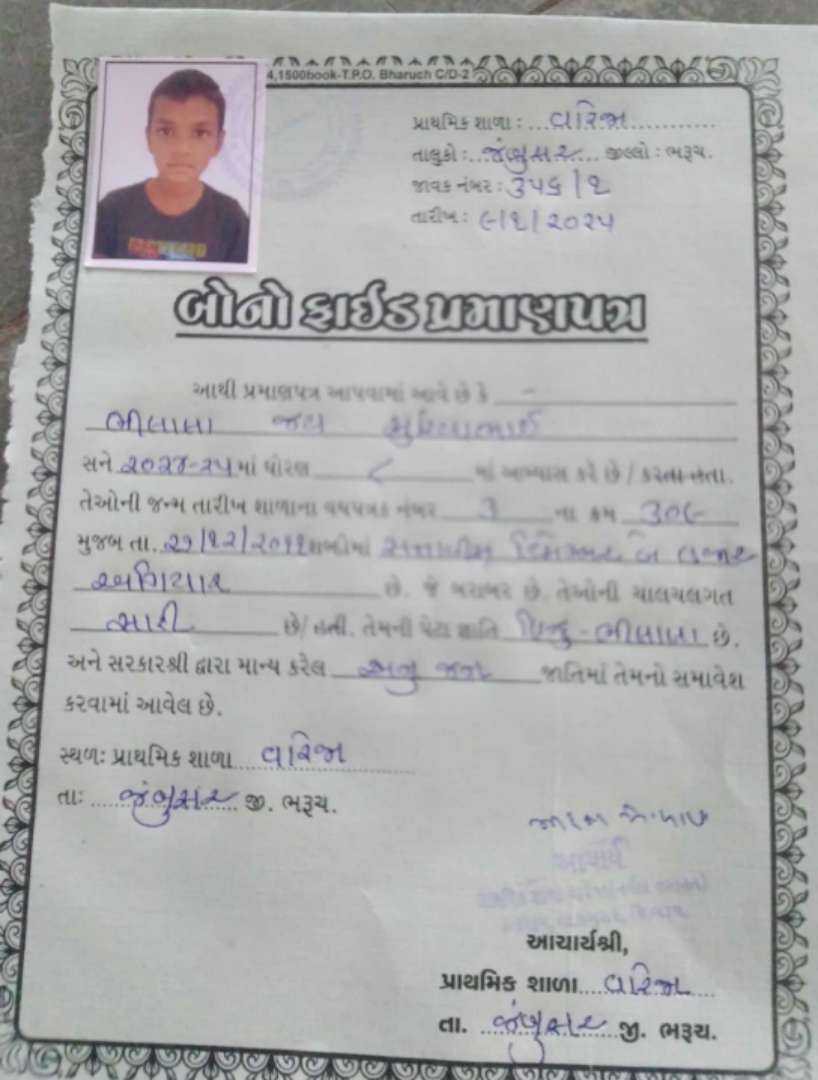 4,1500book-T.P.O. Bharuch C/D-2
પ્રાથમિક શાળા : ...વારિજા............
તાલુકો :...જંબુસર.... જીલ્લો : ભરૂચ.
જાવક નંબર : ૩૫૬/૧
તારીખ : ૯/૧/૨૦૨૫
બોનો ફાઈડ પ્રમાણપત્ર
આથી પ્રમાણપત્ર આપવામાં આવે છે કે
ભીલાલા જય
સને ૨૦૨૪-૨૫માં ધોરણ ૮ માં અભ્યાસ કરે છે / કરતા હતા.
તેઓની જન્મ તારીખ શાળાના વયપત્રક નંબર ૩ ના ક્રમ ૩૦૯
મુજબ તા. ૨૭/૧૨/૨૦૧૧ શબ્દોમાં સત્તાવીસ ડિસેમ્બર બે હજાર
અગિયાર છે. જે બરાબર છે. તેઓની ચાલચલગત
સારી છે/ હતી. તેમની પેટા જ્ઞાતિ હિન્દુ - ભીલાલા છે.
અને સરકારશ્રી દ્વારા માન્ય કરેલ અનુ જન જાતિમાં તેમનો સમાવેશ
કરવામાં આવેલ છે.
સ્થળઃ પ્રાથમિક શાળા વારિજા
તાઃ .....જંબુસર..... જી. ભરૂચ.
આચાર્ય
આચાર્યશ્રી,
પ્રાથમિક શાળા....વારિજા....
તા. ...જંબુસર... જી. ભરૂચ.